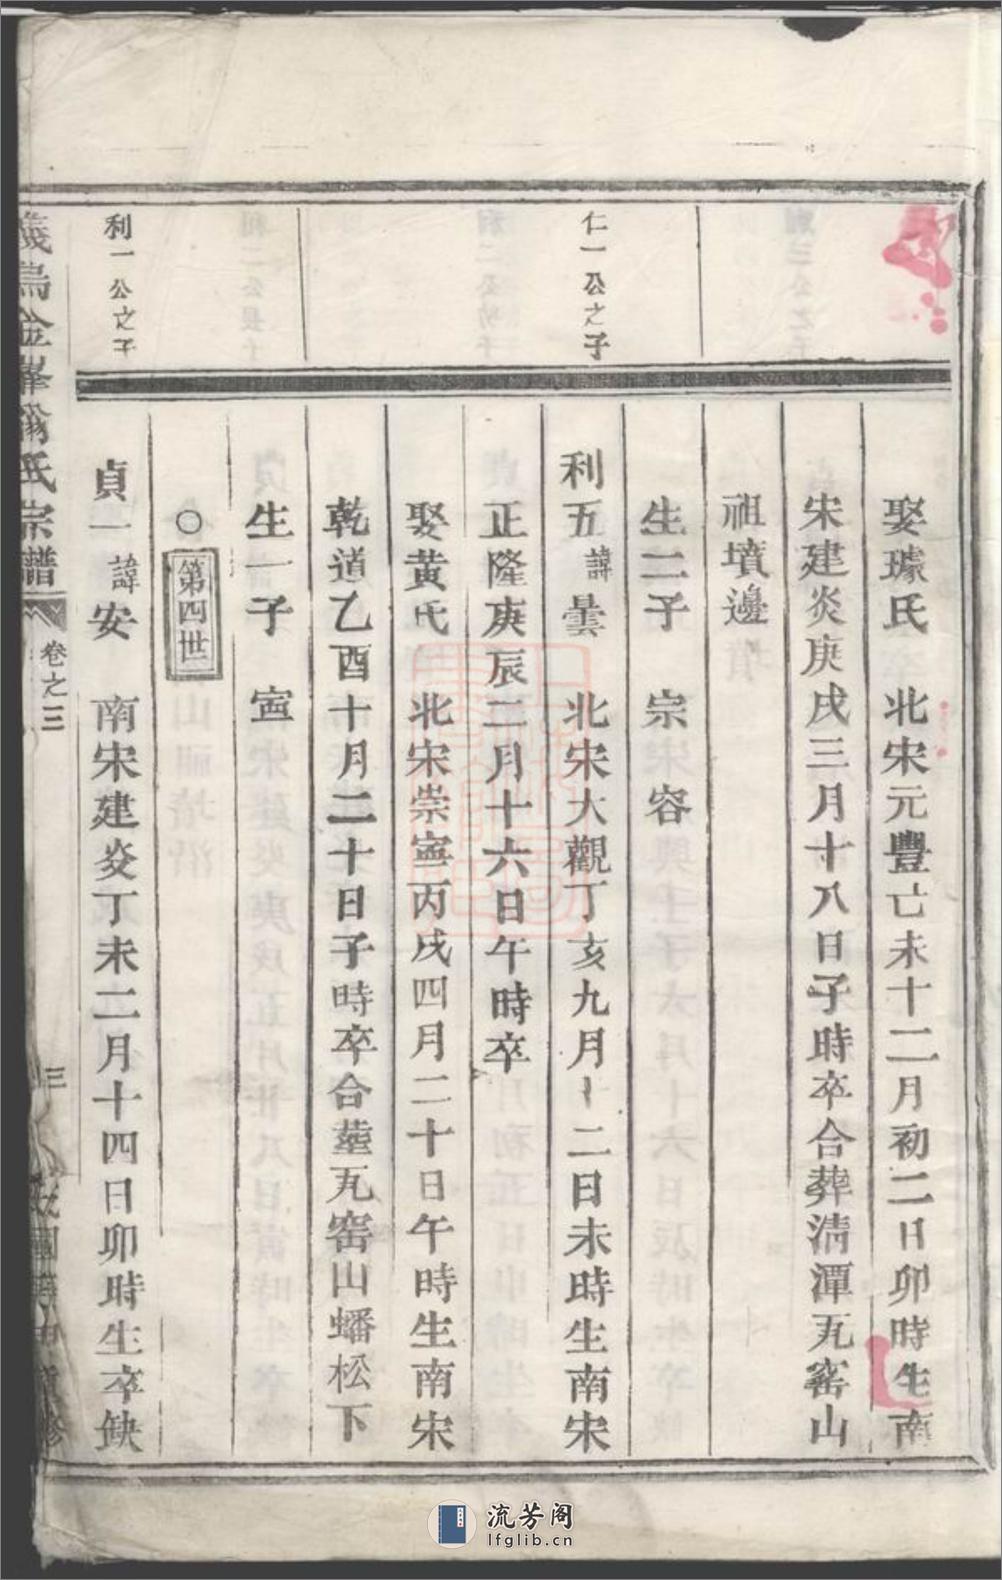 娶璩氏 北宋元豐亡未十二月初二日卯時生南
宋建炎庚戌三月十八日子時卒合葬清潭瓦窑山
祖墳邊
生二子 宗 容
仁一公之子
利五 諱 曇 北宋大觀丁亥九月十二日未時生南宋
正隆庚辰二月十六日午時卒
娶黄氏 北宋崇寧丙戌四月二十日午時生南宋
乾道乙酉十月二十日子時卒合塟瓦窑山蟠松下
生一子 寍
○ 第四世
利一公之子
貞一 諱 安 南宋建炎丁未二月十四日卯時生卒缺
義烏金峯 氏宗譜
卷之三
三
民國 申重修
流芳阁
lfglib.cn